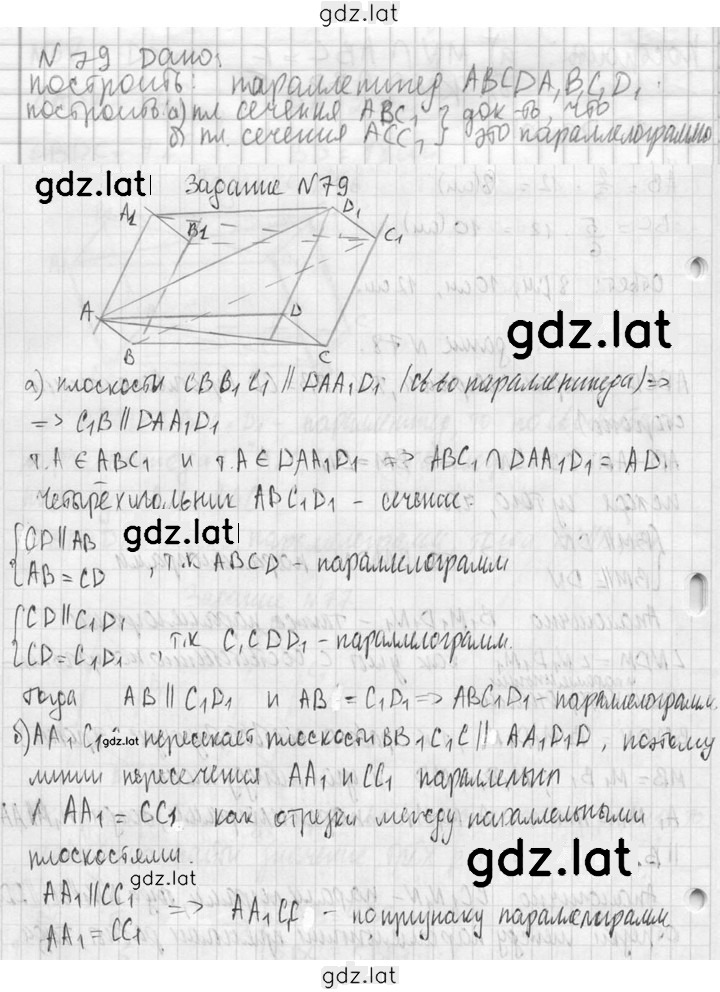 gdz.lat
N 79 Дано:
построить: параллепипед ABCDA₁B₁C₁D₁.
построить: а) пл. сечения ABC₁ } док-ть, что
б) пл. сечения ACC₁ } это параллелограммо
gdz.lat
Задание N79
A₁ D₁
B₁ C₁
A D
B C
gdz.lat
а) плоскости CBB₁C₁ ∥ DAA₁D₁ (св-во параллепипеда) =>
=> C₁B ∥ DAA₁D₁
т.A ∈ ABC₁ и т.A ∈ DAA₁D₁ => ABC₁ ∩ DAA₁D₁ = AD₁
четырёхугольник ABC₁D₁ – сечение.
gdz.lat
{ CD ∥ AB
{ AB = CD , т.к ABCD параллелограмм
{ CD ∥ C₁D₁
{ CD = C₁D₁ , т.к C₁CDD₁ – параллелограмм.
тогда AB ∥ C₁D₁ и AB = C₁D₁ => ABC₁D₁ параллелограмм.
б) AA₁C₁ gdz.lat пересекает плоскости BB₁C₁C ∥ AA₁D₁D, поэтому
линии пересечения AA₁ и CC₁ параллельны
AA₁ = CC₁ как отрезки между параллельными
плоскостями.
gdz.lat
gdz.lat
AA₁ ∥ CC₁
AA₁ = CC₁ => AA₁CC – по признаку параллелограмм
gdz.lat